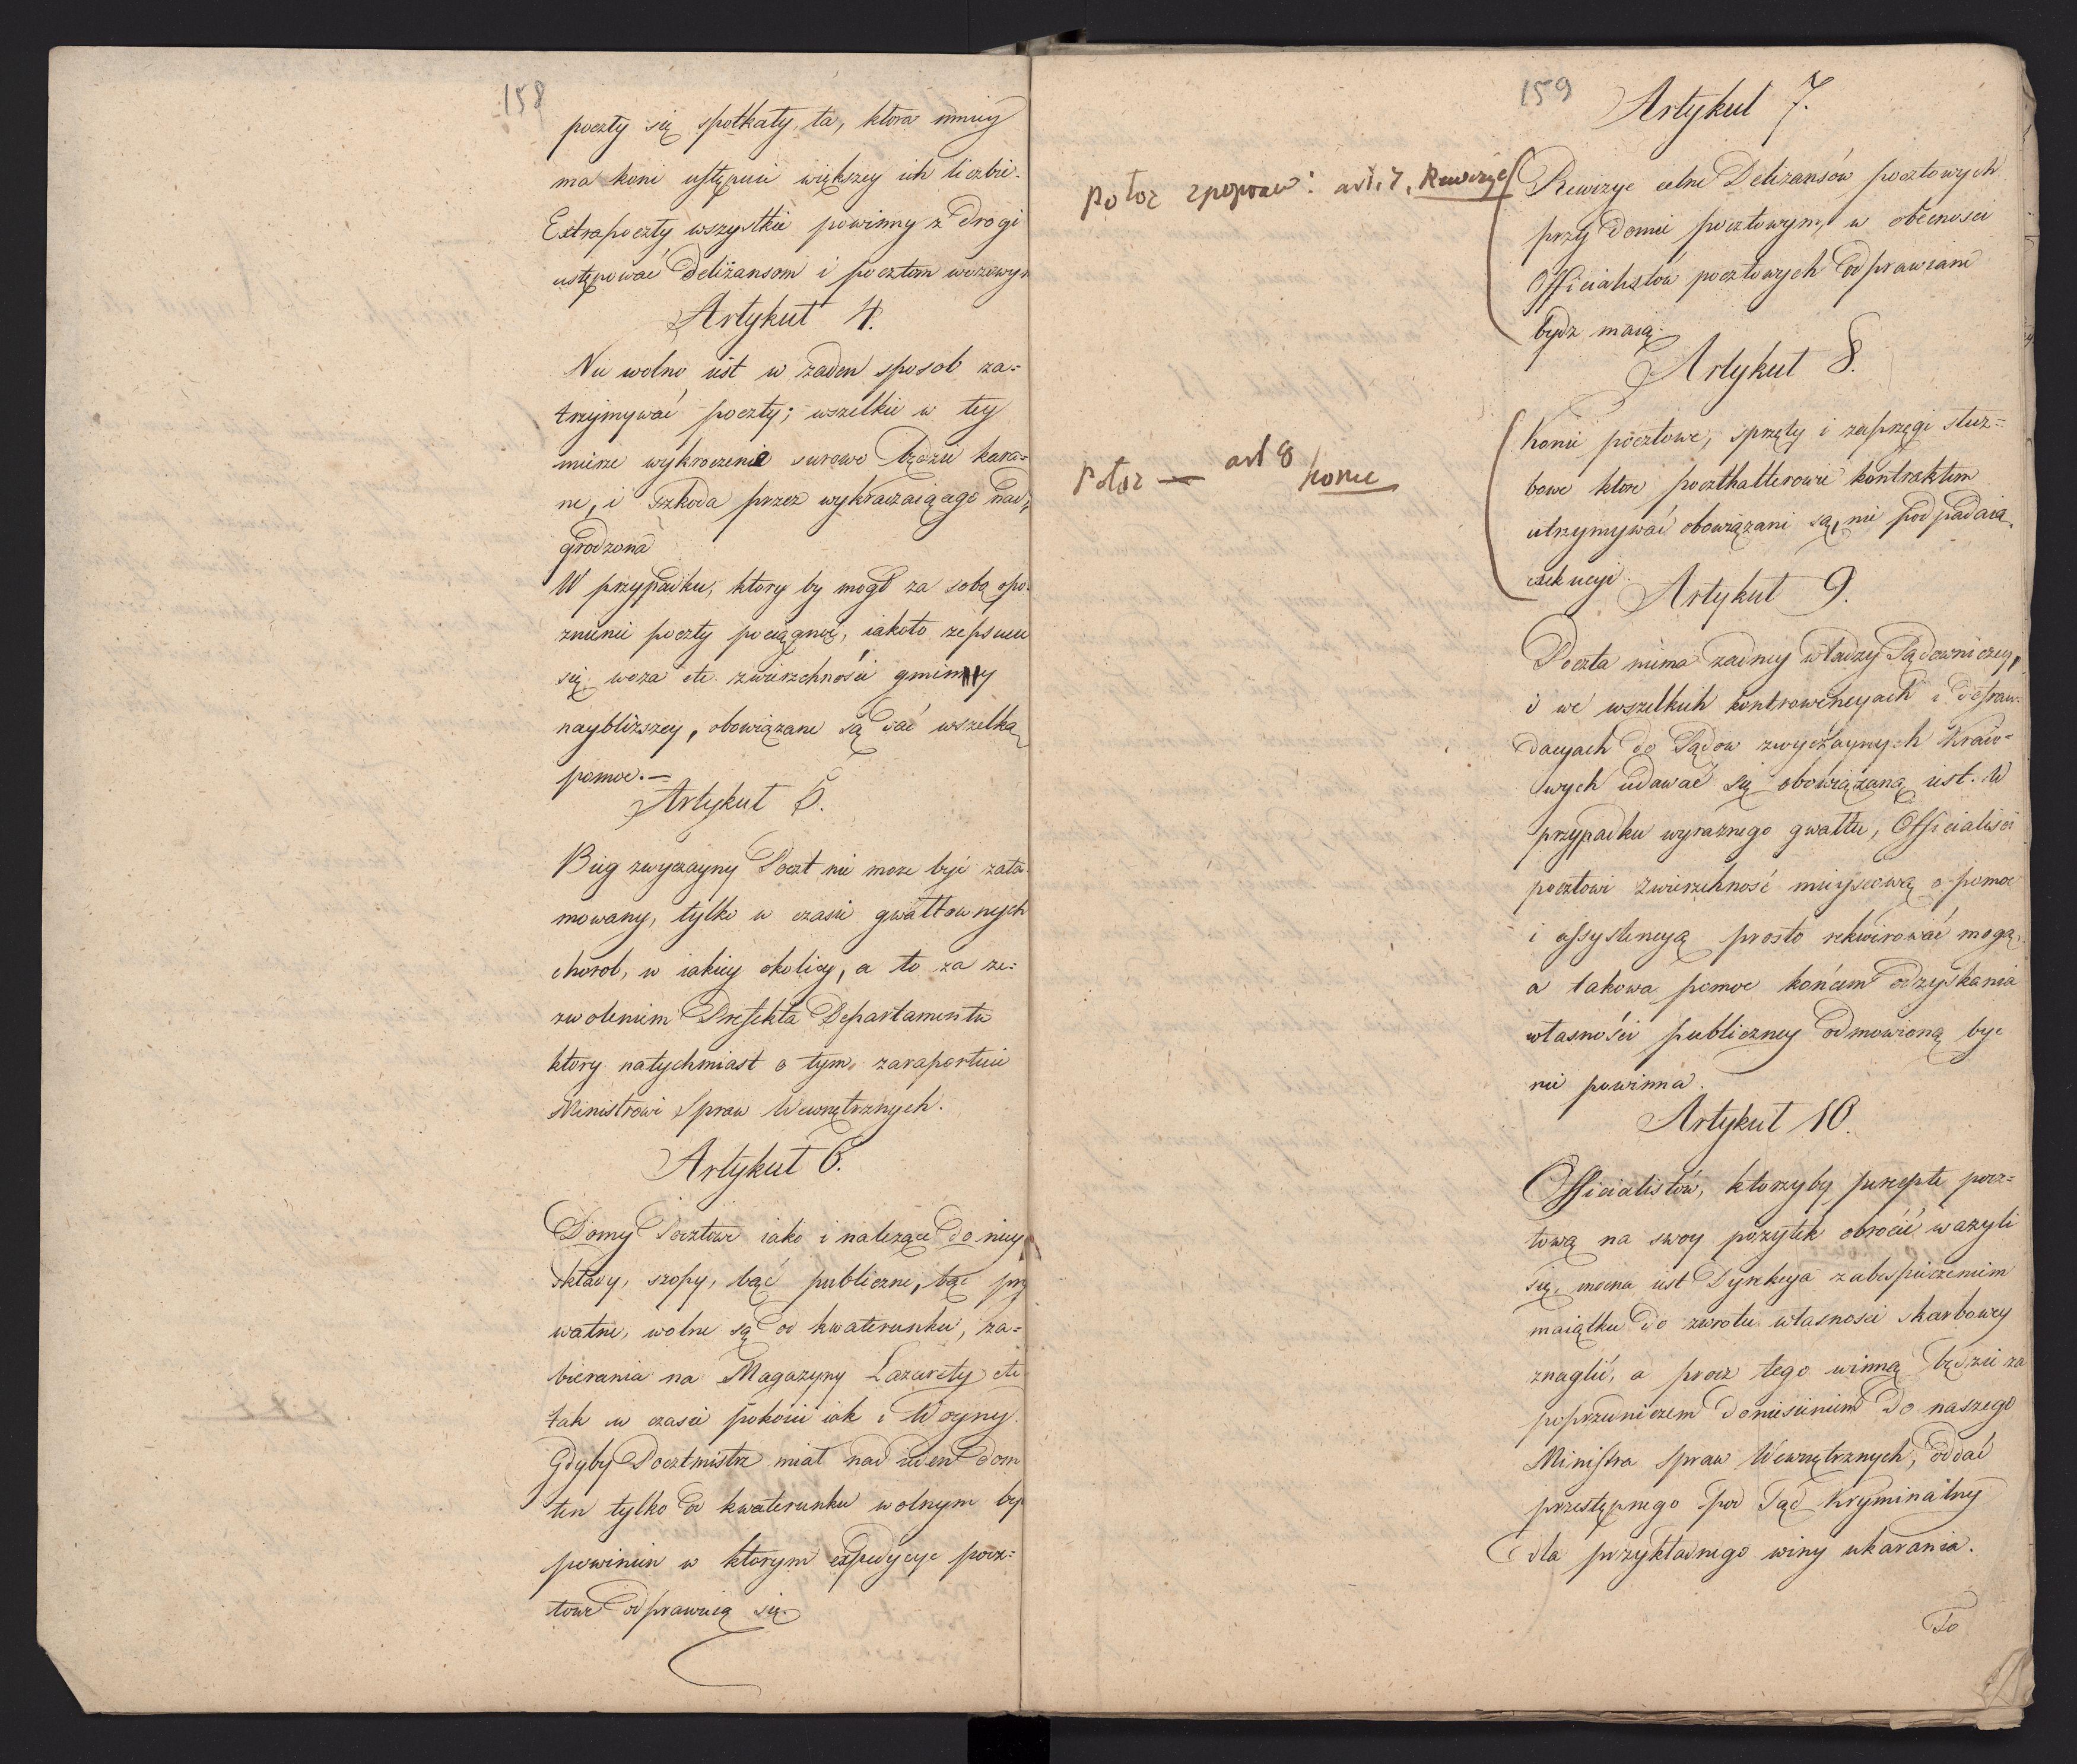 158
poczty się spotkały, ta, ktora mniey
ma koni ustępuie większey ich liczbie.
Extrapoczty wszystkie powinny z drogi
ustępować deliżansom i pocztom wozowym
Artykuł 4.
Nie wolno iest w żaden sposob za=
trzymywać poczty; wszelkie w tey
mierze wykroczenie surowo będzie kara=
ne, i szkoda przez wykraczaiącego nad=
grodzona
W przypadku, ktory by mogł za sobą opo=
znienie poczty pociągnąć, iakoto zepsucie
się woza etc. zwierzchności gminney
naybliższey, obowiązane są dać wszelką
pomoc.—
Artykuł 5.
Bieg zwyczayny Poczt nie może być zata=
mowany, tylko w czasie gwałtownych
chorob, w iakiey okolicy, a to za ze=
zwoleniem Prefekta Departamentu
ktory natychmiast o tym zaraportuie
Ministrowi Spraw Wewnętrznych.
Artykuł 6.
Domy Pocztowe iako i należące do niey
składy, szopy, bąć publiczne, bąć pry
watne, wolne są od kwaterunku, za=
bierania na Magazyny Lazarety etc
tak w czasie pokoiu iak i Woyny.
Gdyby Pocztmistrz miał nad ieden dom
ten tylko od kwaterunku wolnym być
powinien w ktorym expedycye pocz=
towe odprawuią się.
159
Artykuł 7.
połoz zpopraw: art: 7, Rewizye
Rewizye celne Deliżansów pocztowych
przy domie pocztowym w obecnosci
Officialistów pocztowych odprawiane
bydz maią.
Artykuł 8.
połoz — art 8 konie
Konie pocztowe, sprzęty i zaprzęgi służ=
bowe ktore poczthalterowie kontraktem
utrzymywać obowiązani są, nie podpadaią
exekucyi.
Artykuł 9.
Poczta niema żadney władzy Sądowniczey,
i we wszelkich kontrawencyach i defrau=
dacyach do Sądow zwyczaynych Kraio=
wych udawać się obowiązaną iest. W
przypadku wyraznego gwałtu, Officialisci
pocztowi zwierzchność mieyscową o pomoc
i assystencyą prosto rekwirować mogą,
a takowa pomoc końcem odzyskania
własności publiczney odmowioną byc
nie powinna.
Artykuł 10.
Officialistów, ktorzyby perceptę pocz=
tową na swoy pożytek obrócić ważyli
się, mocna iest Dyrekcya zabespieczeniem
maiątku do zwrotu własnosci skarbowey
znaglić, a procz tego winną będzie za
poprzedniczem doniesieniem do naszego
Ministra Spraw Wewnętrznych, oddać
przestępnego pod Sąd Kryminalny
dla przykładnego winy ukarania.
To